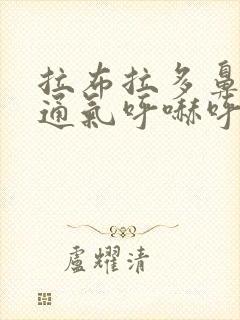 拉布拉多鼻
通氣呼嚇呼
盧耀清